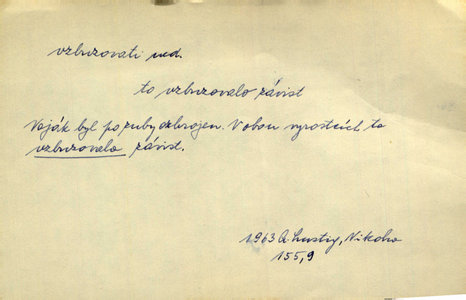 vzbuzovati ned.
to vzbuzovalo závist
Voják byl po zuby ozbrojen. V obou vyrostcích to
vzbuzovalo závist.
1963 A. Lustig, Nikoho
155,9